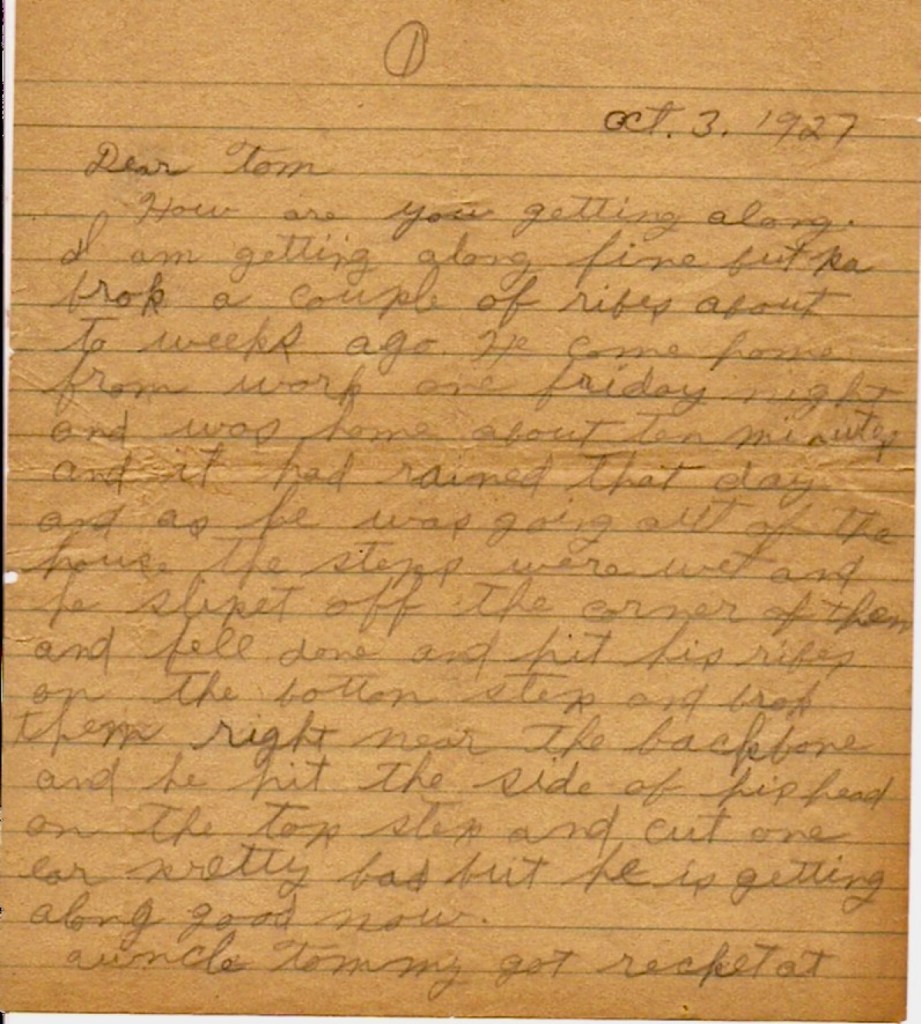 1
Oct. 3. 1927
Dear Tom
How are you getting along.
I am getting along fine but pa
brok a couple of ribes about
to weeks ago. He come home
from work one friday night
and was home about ten minutes
and it had rained that day
and as he was going out of the
house the steps were wet and
he slipet off the corner of them
and fell done and hit his ribes
on the botton step and brok
them right near the backbone
and he hit the side of his head
on the top step and cut one
ear pretty bad but he is getting
along good now.
auncle Tommy got recket at